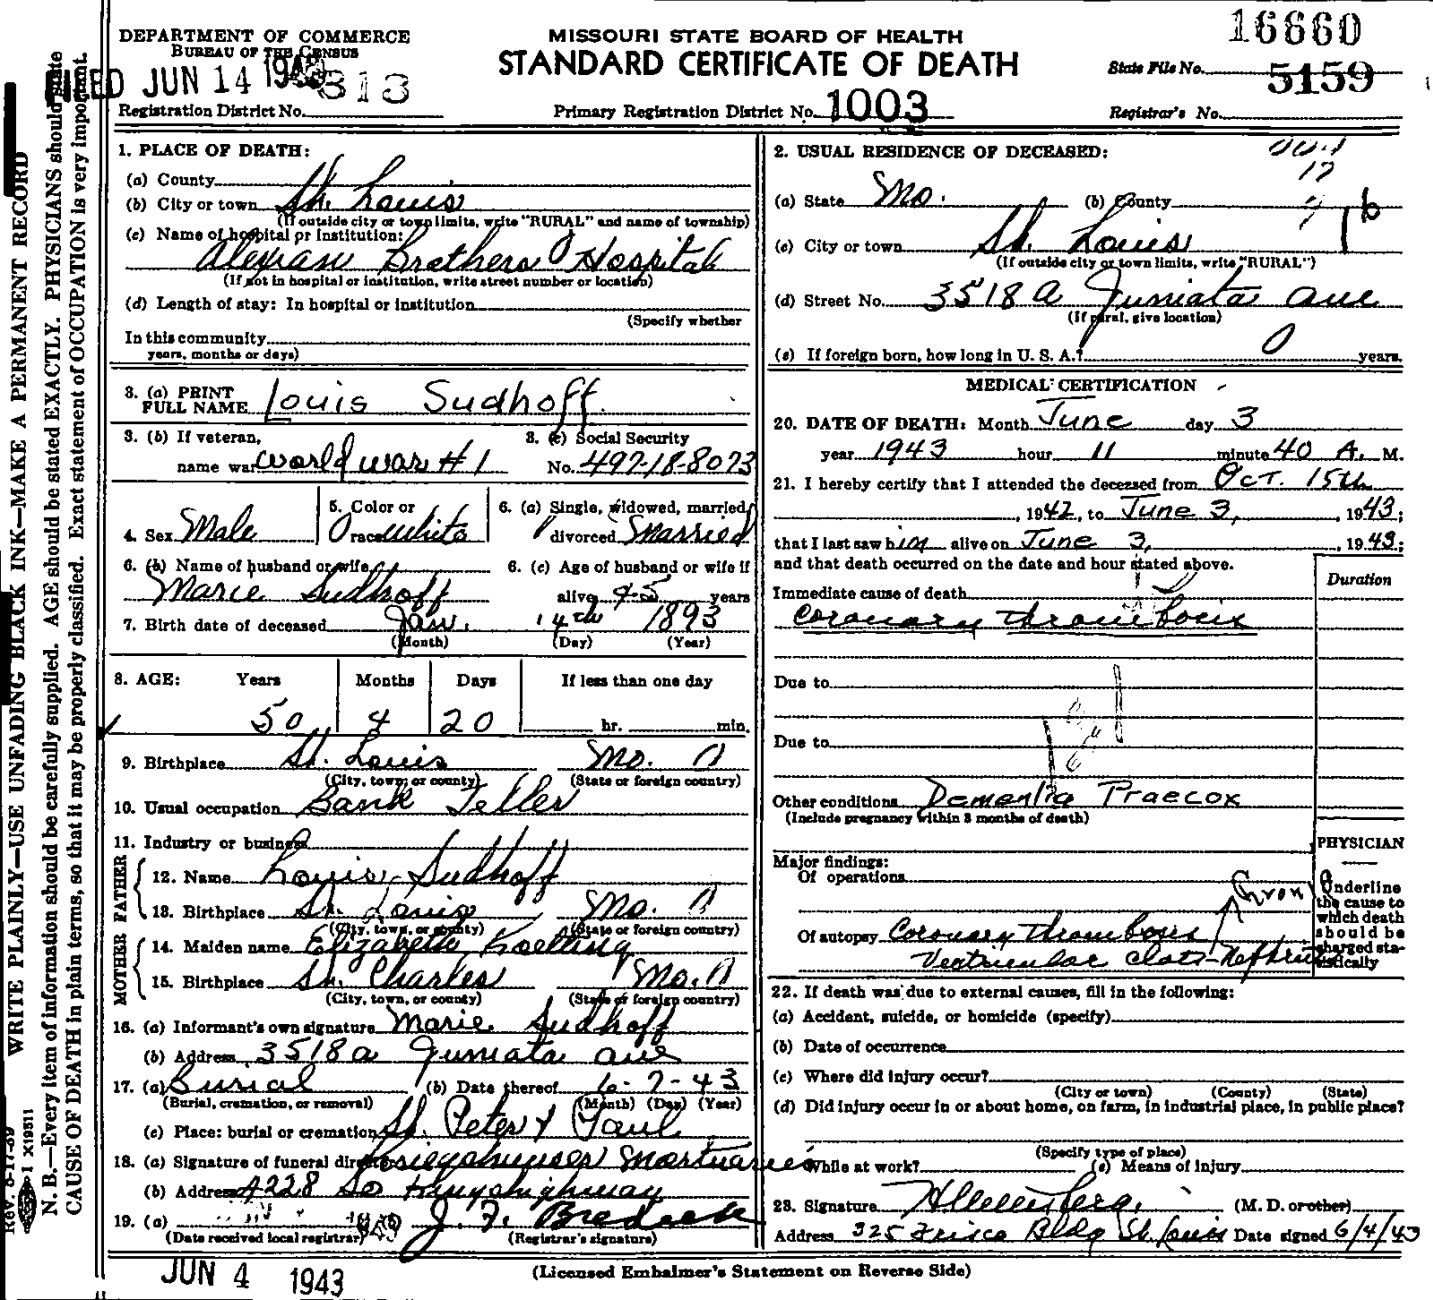 DEPARTMENT OF COMMERCE
BUREAU OF THE CENSUS
MISSOURI STATE BOARD OF HEALTH
STANDARD CERTIFICATE OF DEATH
16660
State File No.
5159
JUN 14
313
Registration District No.
Primary Registration District No. 1003
Registrar's No.
WRITE PLAINLY—USE UNFADING BLACK INK—MAKE A PERMANENT RECORD
N. B.—Every item of information should be carefully supplied. AGE should be stated EXACTLY. PHYSICIANS should state
CAUSE OF DEATH in plain terms, so that it may be properly classified. Exact statement of OCCUPATION is very important.
X19511
1. PLACE OF DEATH:
(a) County
(b) City or town St. Louis
(If outside city or town limits, write "RURAL" and name of township)
(c) Name of hospital or institution:
Alexian Brothers Hospital
(If not in hospital or institution, write street number or location)
(d) Length of stay: In hospital or institution
(Specify whether
In this community
years, months or days)
3. (a) PRINT
FULL NAME Louis Sudhoff
3. (b) If veteran,
name war World War #1
3. (c) Social Security
No. 497-18-8073
4. Sex Male
5. Color or
race White
6. (a) Single, widowed, married,
divorced Married
6. (b) Name of husband or wife
Marie Sudhoff
6. (c) Age of husband or wife if
alive 45 years
7. Birth date of deceased Jan. 14th 1893
(Month) (Day) (Year)
8. AGE: Years Months Days If less than one day
50 4 20 hr. min.
9. Birthplace St. Louis Mo.
(City, town, or county) (State or foreign country)
10. Usual occupation Bank Teller
11. Industry or business
FATHER
12. Name Louis Sudhoff
13. Birthplace St. Louis Mo.
(City, town, or county) (State or foreign country)
MOTHER
14. Maiden name Elizabeth Koelling
15. Birthplace St. Charles Mo.
(City, town, or county) (State or foreign country)
16. (a) Informant's own signature Marie Sudhoff
(b) Address 3518a Juniata ave
17. (a) Burial (b) Date thereof 6-7-43
(Burial, cremation, or removal) (Month) (Day) (Year)
(c) Place: burial or cremation St. Peter & Paul
18. (a) Signature of funeral director Ziegenhein Mortuaries
(b) Address 4228 So Kingshighway
19. (a) J. F. Bredeck
(Date received local registrar) (Registrar's signature)
JUN 4 1943
2. USUAL RESIDENCE OF DECEASED:
17
(a) State Mo. (b) County
(c) City or town St. Louis
(If outside city or town limits, write "RURAL")
(d) Street No. 3518A Juniata ave
(If rural, give location)
(e) If foreign born, how long in U. S. A.? 0 years.
MEDICAL CERTIFICATION
20. DATE OF DEATH: Month June day 3
year 1943 hour 11 minute 40 A. M.
21. I hereby certify that I attended the deceased from Oct. 15th
, 1942, to June 3, , 1943;
that I last saw him alive on June 3, , 1943;
and that death occurred on the date and hour stated above.
Duration
Immediate cause of death
Coronary thrombosis
Due to
Due to
Other conditions Dementia Praecox
(Include pregnancy within 3 months of death)
PHYSICIAN
Underline
the cause to
which death
should be
charged sta-
tistically
Major findings:
Of operations
Chron
Of autopsy Coronary thrombosis
Ventricular clots-Nephritis
22. If death was due to external causes, fill in the following:
(a) Accident, suicide, or homicide (specify)
(b) Date of occurrence
(c) Where did injury occur?
(City or town) (County) (State)
(d) Did injury occur in or about home, on farm, in industrial place, in public place?
(Specify type of place)
While at work? (e) Means of injury
23. Signature (M. D. or other)
Address 325 Frisco Bldg St. Louis Date signed 6/4/43
(Licensed Embalmer's Statement on Reverse Side)